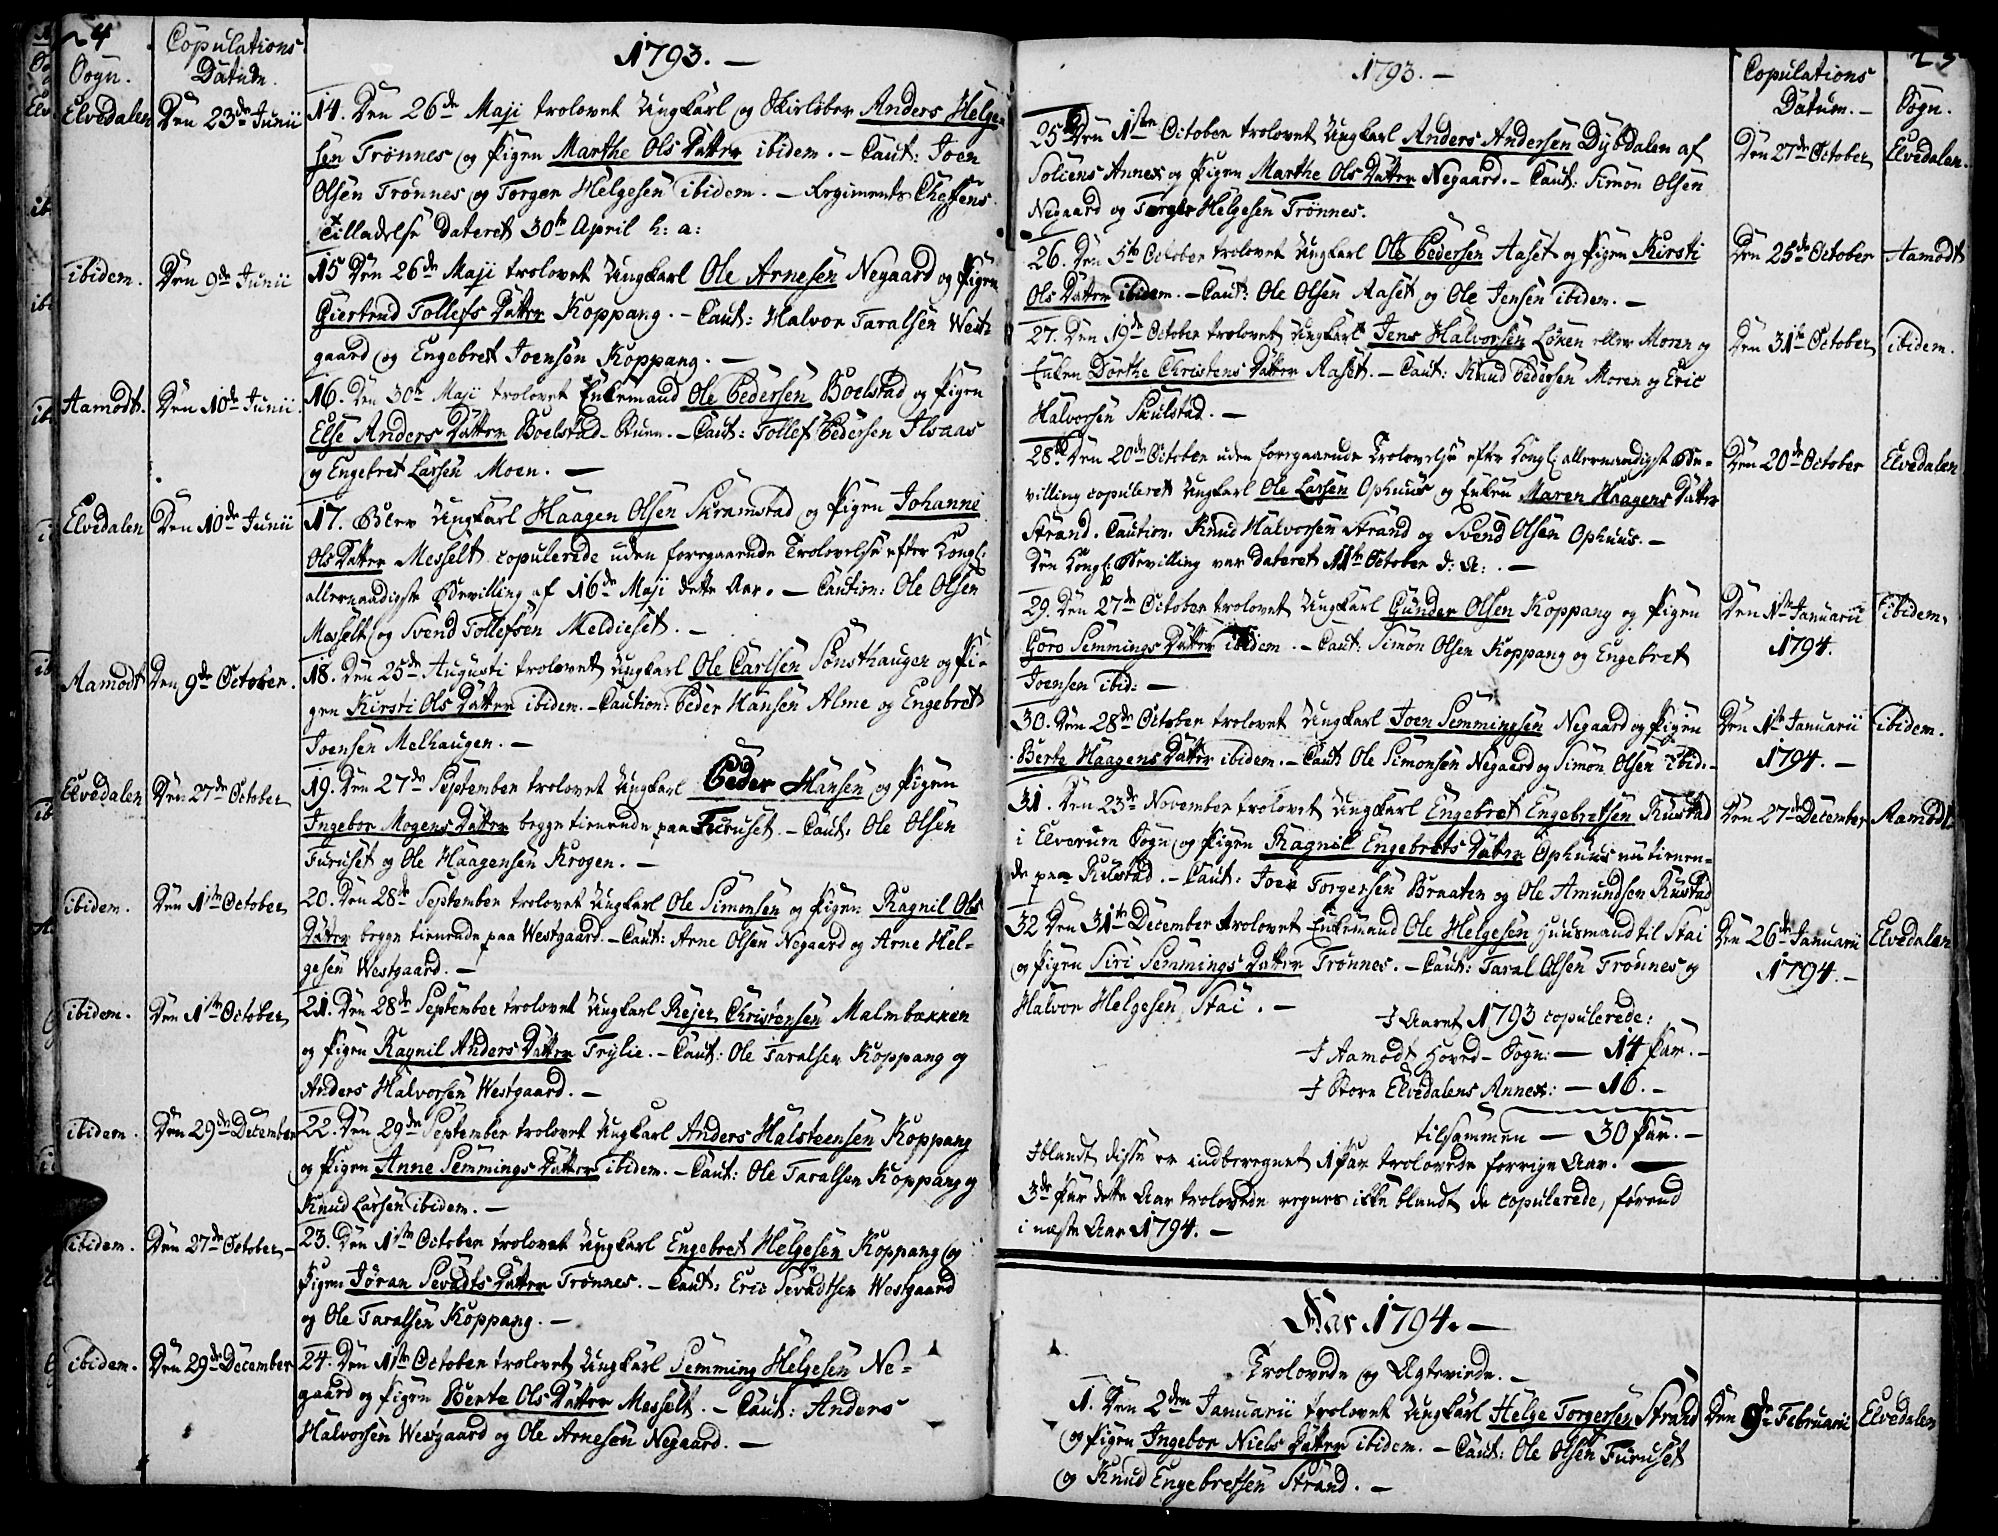 24
Sogn.
Copulations
Datum.
1793. —
Elvedalen
Den 23de Junii
14. Den 26de Maji trolovet Ungkarl og Skirløber Anders Helge-
sen Trønnes og Pigen Marthe Ols Datter ibidem. — Caut: Joen
Olsen Trønnes og Torger Helgesen ibidem. — Regiments Cheffens
Tilladelse dateret 30te April h: a:
ibidem.
Den 9de Junii
15 Den 26de Maji trolovet Ungkarl Ole Arnesen Negaard og Pigen
Giertrud Tollefs Datter Koppang. — Caut: Halvor Taralsen West-
gaard og Engebret Joensen Koppang. —
Aamodt.
Den 10de Junii.
16. Den 30te Maji trolovet Enkemand Ole Pedersen Boelstad og Pigen
Else Anders Datter Boelstad-Stuen. — Caut: Tollef Pedersen Ilvaas
og Engebret Larsen Moen. —
Elvedalen
Den 10de Junii
17. Blev Ungkarl Haagen Olsen Skramstad og Pigen Johanne
Ols Datter Messelt copulerede uden foregaaende Trolovelse efter Kongl:
allernaadigste Bevilling af 16de Maji dette Aar. — Caution: Ole Olsen
Messelt og Svend Tollefsen Meldieset. —
Aamodt
Den 9de October.
18. Den 25de Augusti trolovet Ungkarl Ole Carlsen Sønsthaugen og Pi-
gen Kirsti Ols Datter ibidem. — Caution: Peder Hansen Alme og Engebret
Joensen Melhaugen. —
Elvedalen
Den 27de October
19. Den 27de September trolovet Ungkarl Peder Hansen og Pigen
Ingebor Mogens Datter begge tienende paa Furuset. — Caut: Ole Olsen
Furuset og Ole Haagensen Krogen. —
ibidem.
Den 1ste October
20. Den 28de September trolovet Ungkarl Ole Simensen og Pigen Ragnil Ols
Datter begge tienende paa Westgaard. — Caut: Arne Olsen Negaard og Arne Hel-
gesen Westgaard. —
ibidem.
Den 1ste October
21. Den 28de September trolovet Ungkarl Rejer Christensen Malmbakken
og Pigen Ragnil Anders Datter Trylie. — Caut: Ole Taralsen Koppang og
Anders Halvorsen Westgaard. —
ibidem.
Den 29de December
22. Den 29de September trolovet Ungkarl Anders Halsteensen Koppang
og Pigen Anne Semmings Datter ibidem. — Caut: Ole Taralsen Koppang og
Knud Larsen ibidem. —
ibidem.
Den 27de October —
23. Den 1ste October trolovet Ungkarl Engebret Helgesen Koppang og
Pigen Jøran Sevadts Datter Trønnes. — Caut: Eric Sevadtsen Westgaard
og Ole Taralsen Koppang. —
ibidem.
Den 29de December
24. Den 1ste October trolovet Ungkarl Semming Helgesen Ne-
gaard og Pigen Berte Ols Datter Messelt. — Caut: Anders
Halvorsen Westgaard og Ole Arnesen Negaard. —
1793. —
Copulations
Datum. —
25
Sogn.
25. Den 1ste October trolovet Ungkarl Anders Andersen Dybdalen af
Soliens Annex og Pigen Marthe Ols Datter Negaard. — Caut: Simon Olsen
Negaard og Torger Helgesen Trønnes.
Den 27de October
Elvedalen.
26. Den 5te October trolovet Ungkarl Ole Pedersen Aaset og Pigen Kirsti
Ols Datter ibidem. — Caut: Ole Olsen Aaset og Ole Jensen ibidem. —
Den 25de October
Aamodt
27. Den 19de October trolovet Ungkarl Jens Halvorsen Løken eller Moren og
Enken Dorthe Christens Datter Aaset. — Caut: Knud Pedersen Moren og Eric
Halvorsen Skulstad. —
Den 31te October
ibidem.
28. Den 20de October uden foregaaende Trolovelse efter Kongl: allernaadigst Be-
villing copuleret Ungkarl Ole Larsen Ophuus og Enken Maren Haagens Datter
Strand. Caution: Knud Halvorsen Strand og Svend Olsen Ophuus. —
Den Kongl: Bevilling var dateret 11te October d: A: . —
Den 20de October
Elvedalen
29. Den 27de October trolovet Ungkarl Gunder Olsen Koppang og Pigen
Goro Semmings Datter ibidem. — Caut: Simon Olsen Koppang og Engebret
Joensen ibid: —
Den 1ste Januarii
1794.
ibidem.
30. Den 28de October trolovet Ungkarl Joen Semmingsen Negaard og Pigen
Berte Haagens Datter ibidem. — Caut Ole Simonsen Negaard og Simon Olsen ibid: —
Den 1ste Januarii
1794. —
ibidem.
31. Den 23de November trolovet Ungkarl Engebret Engebretsen Rustad
i Elverum Sogn og Pigen Ragnil Engebrets Datter Ophuus nu tienen-
de paa Rustad. — Caut: Joen Torgersen Braaten og Ole Amundsen Rustad
Den 27de December
Aamodt.
32 Den 31te December trolovet Enkemand Ole Helgesen Huusmand til Stai
og Pigen Siri Semmings Datter Trønnes. — Caut: Taral Olsen Trønnes og
Halvor Helgesen Stai. —
Den 26de Januarii
1794. —
Elvedalen
I Aaret 1793 copulerede:
I Aamodt Hoved-Sogn: — 14 Par. —
I Store Elvedalens Annex: — 16. —
tilsammen — 30 Par. —
Iblandt disse er indberegnet 1 Par trolovede forrige Aar. —
3de Par dette Aar trolovede regnes ikke blandt de copulerede, førend
i næste Aar 1794. —
Aar 1794. —
Trolovede og Ægteviede. —
1. Den 2den Januarii trolovet Ungkarl Helge Torgersen Strand
og Pigen Ingebor Niels Datter ibidem. — Caut: Ole Olsen Furuset
og Knud Engebretsen Strand. —
Den 9de Februarii
Elvedalen